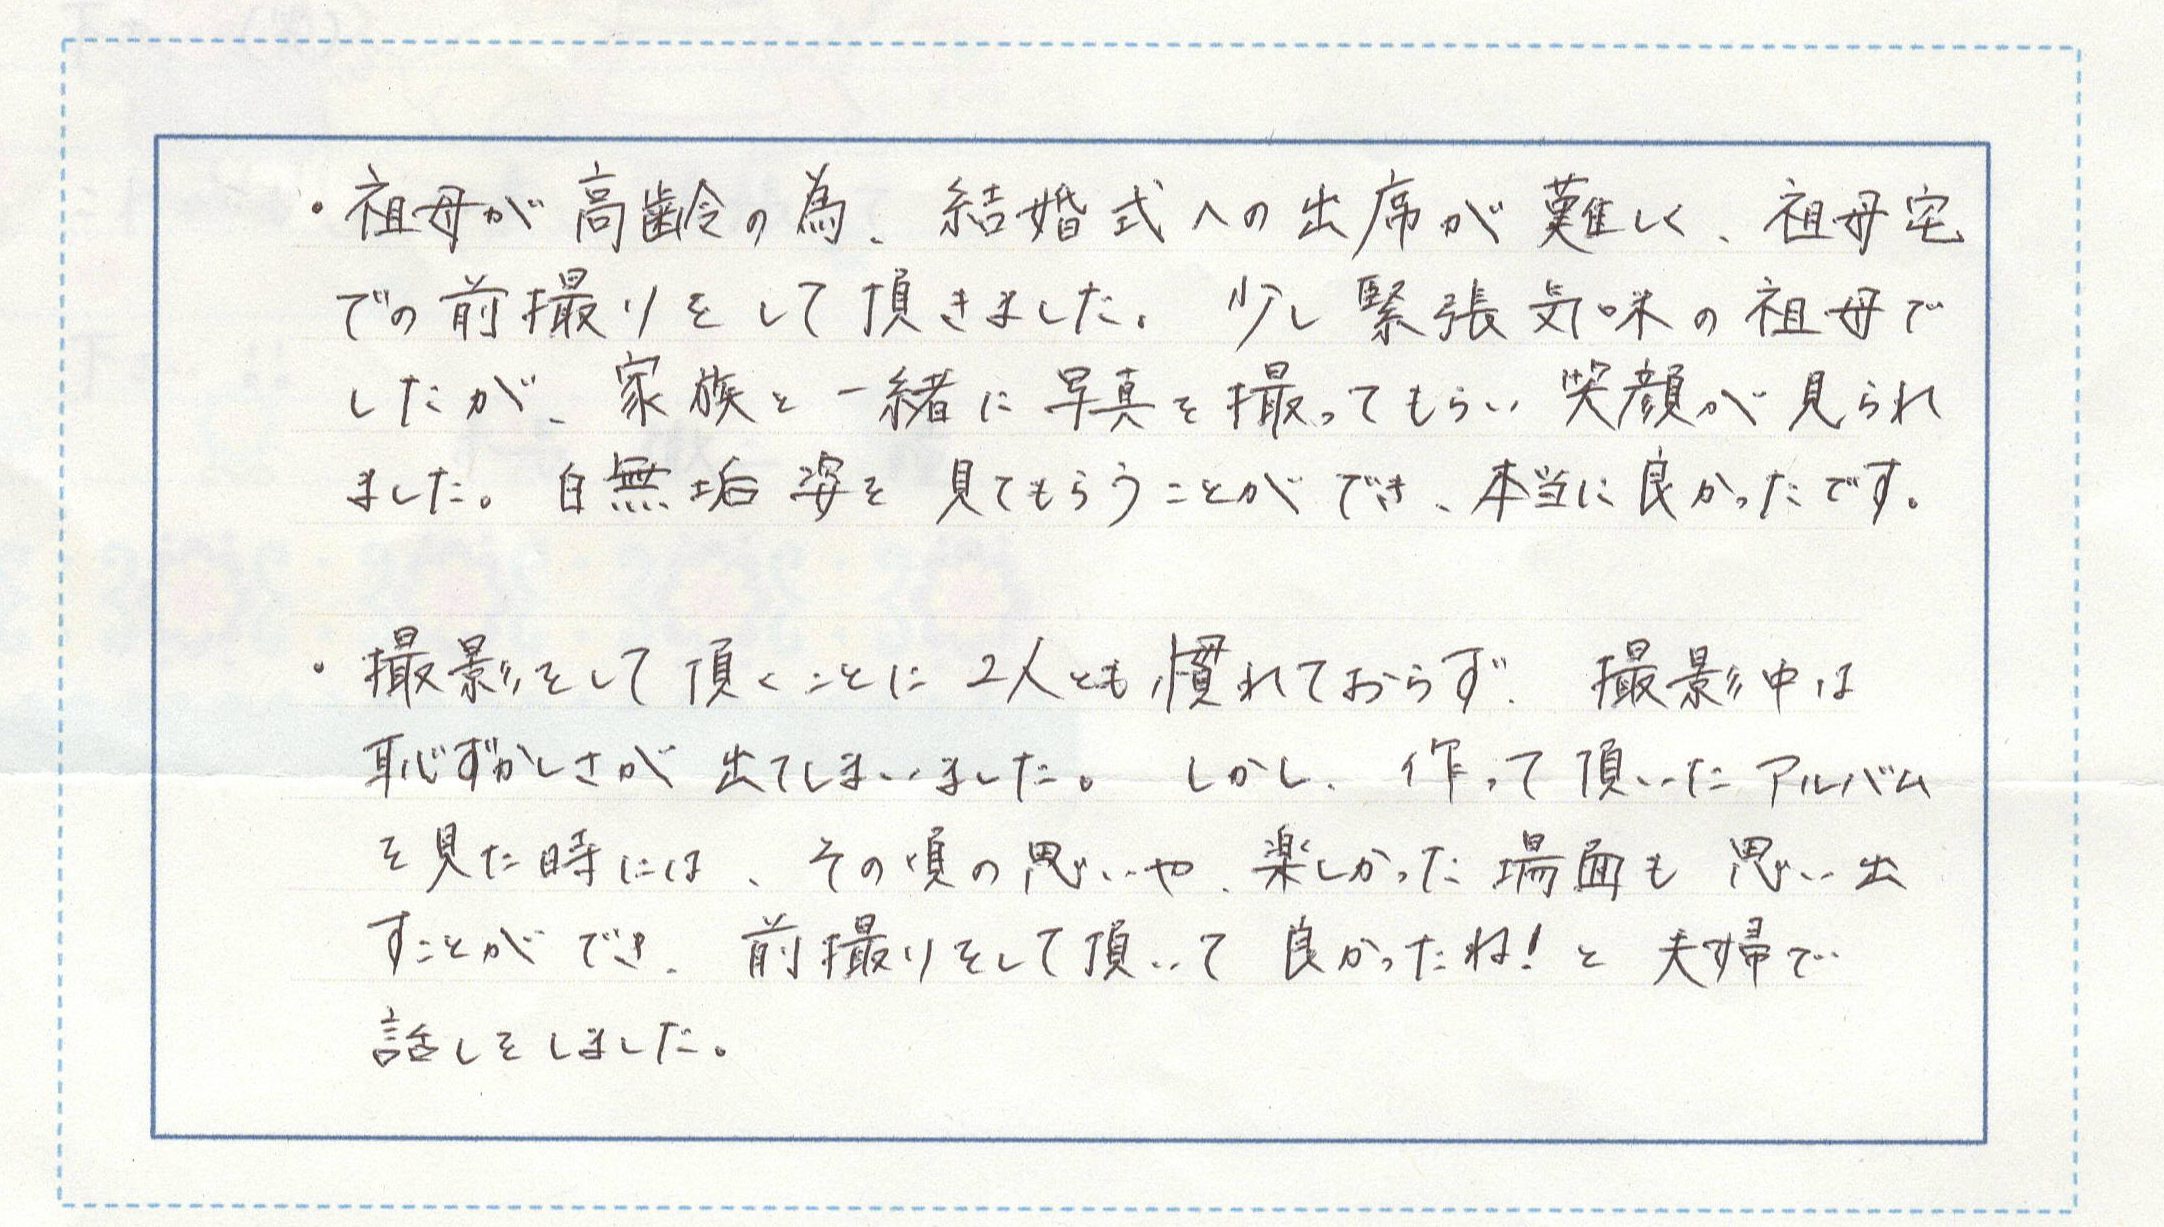 ・祖母が高齢の為、結婚式への出席が難しく、祖母宅
での前撮りをして頂きました。少し緊張気味の祖母で
したが、家族と一緒に写真を撮ってもらい笑顔が見られ
ました。白無垢姿を見てもらうことができ、本当に良かったです。
・撮影をして頂くことに2人とも慣れておらず、撮影中は
恥ずかしさが出てしまいました。しかし、作って頂いたアルバム
を見た時には、その頃の思いや、楽しかった場面も思い出
すことができ、前撮りをして頂いて良かったね!と夫婦で
話しをしました。